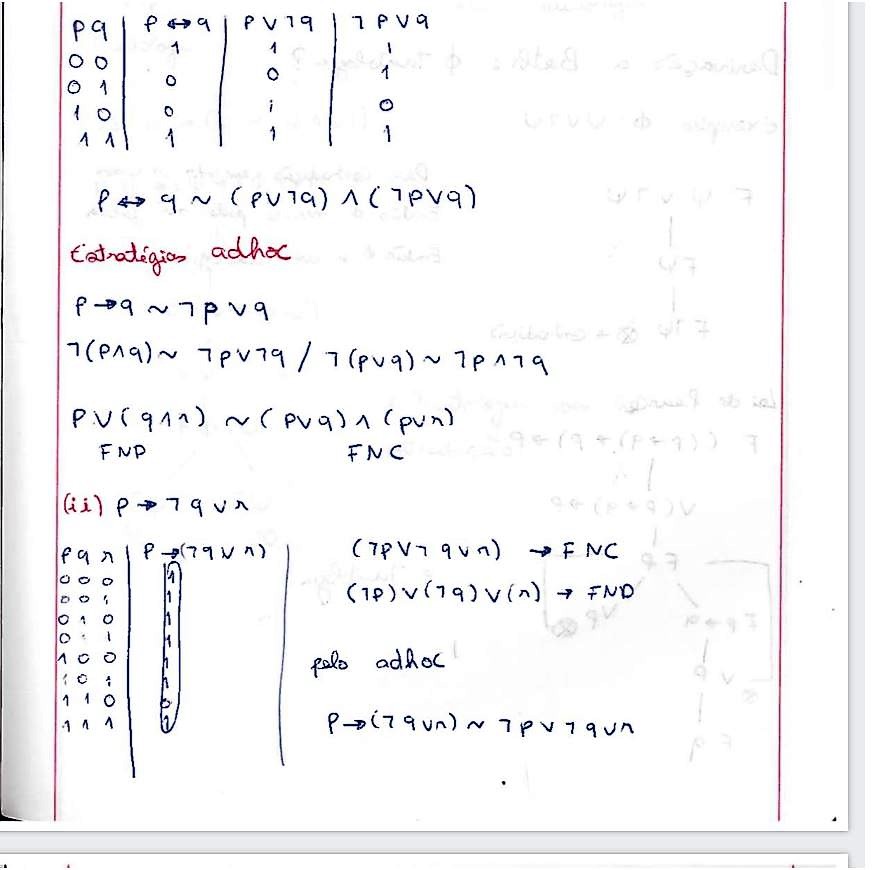 p q | p ↔ q | p ∨ ¬q | ¬p ∨ q
0 0 | 1 | 1 | 1
0 1 | 0 | 0 | 1
1 0 | 0 | 1 | 0
1 1 | 1 | 1 | 1
p ↔ q ~ (p ∨ ¬q) ∧ (¬p ∨ q)
Estratégias adhoc
p → q ~ ¬p ∨ q
¬(p ∧ q) ~ ¬p ∨ ¬q / ¬(p ∨ q) ~ ¬p ∧ ¬q
p ∨ (q ∧ r) ~ (p ∨ q) ∧ (p ∨ r)
FND FNC
(ii) p → ¬q ∨ r
p q r | p → (¬q ∨ r)
0 0 0 | 1
0 0 1 | 1
0 1 0 | 1
0 1 1 | 1
1 0 0 | 1
1 0 1 | 1
1 1 0 | 0
1 1 1 | 1
(¬p ∨ ¬q ∨ r) → FNC
(¬p) ∨ (¬q) ∨ (r) → FND
pelo adhoc
p → (¬q ∨ r) ~ ¬p ∨ ¬q ∨ r